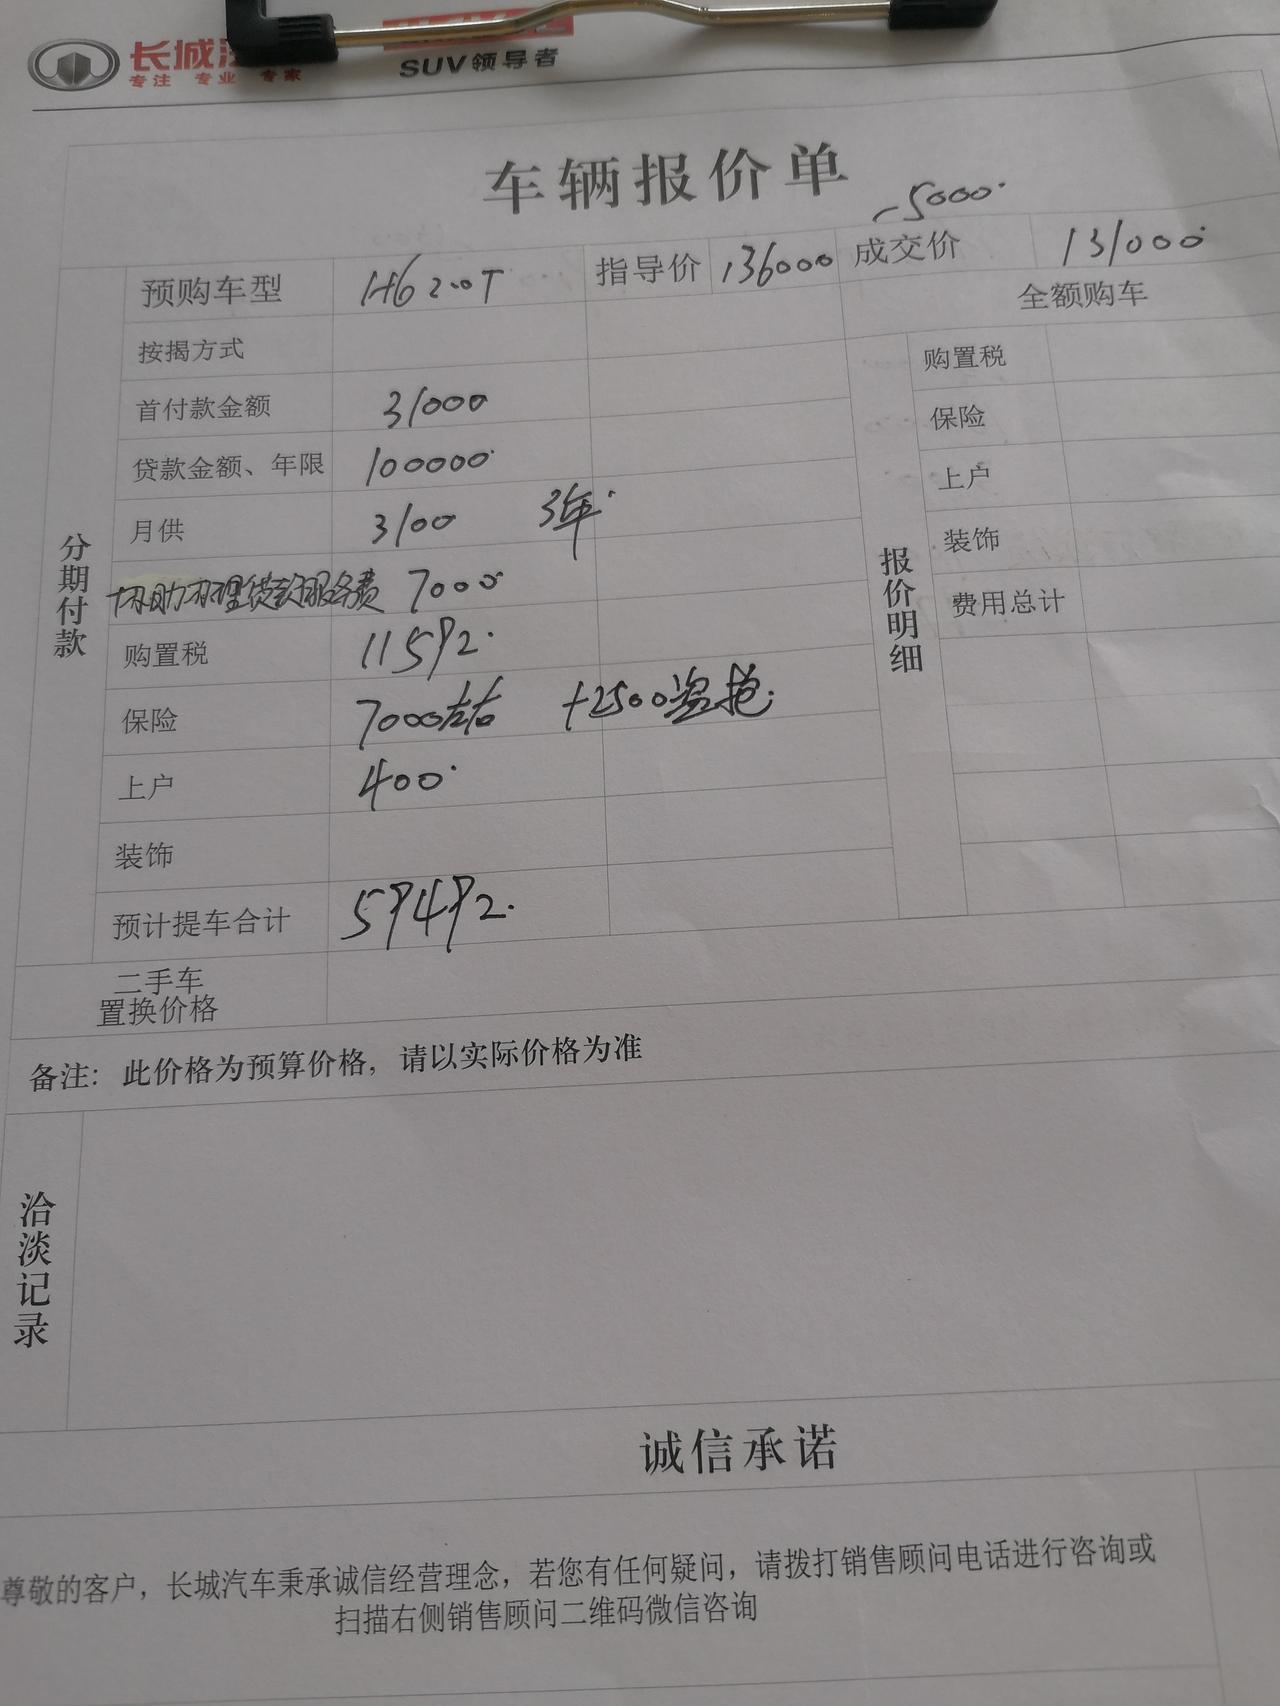 长城
专注 专业 专家
SUV领导者
车辆报价单
-5000.
预购车型 H6 2.0T 指导价 136000 成交价 131000
全额购车
分期付款
按揭方式
首付款金额 31000
贷款金额、年限 100000
月供 3100 3年.
协助办理贷款服务费 7000
购置税 11592.
保险 7000左右 +2500盗抢.
上户 400.
装饰
预计提车合计 59492.
报价明细
购置税
保险
上户
装饰
费用总计
二手车
置换价格
备注：此价格为预算价格，请以实际价格为准
洽淡记录
诚信承诺
尊敬的客户，长城汽车秉承诚信经营理念，若您有任何疑问，请拨打销售顾问电话进行咨询或
扫描右侧销售顾问二维码微信咨询